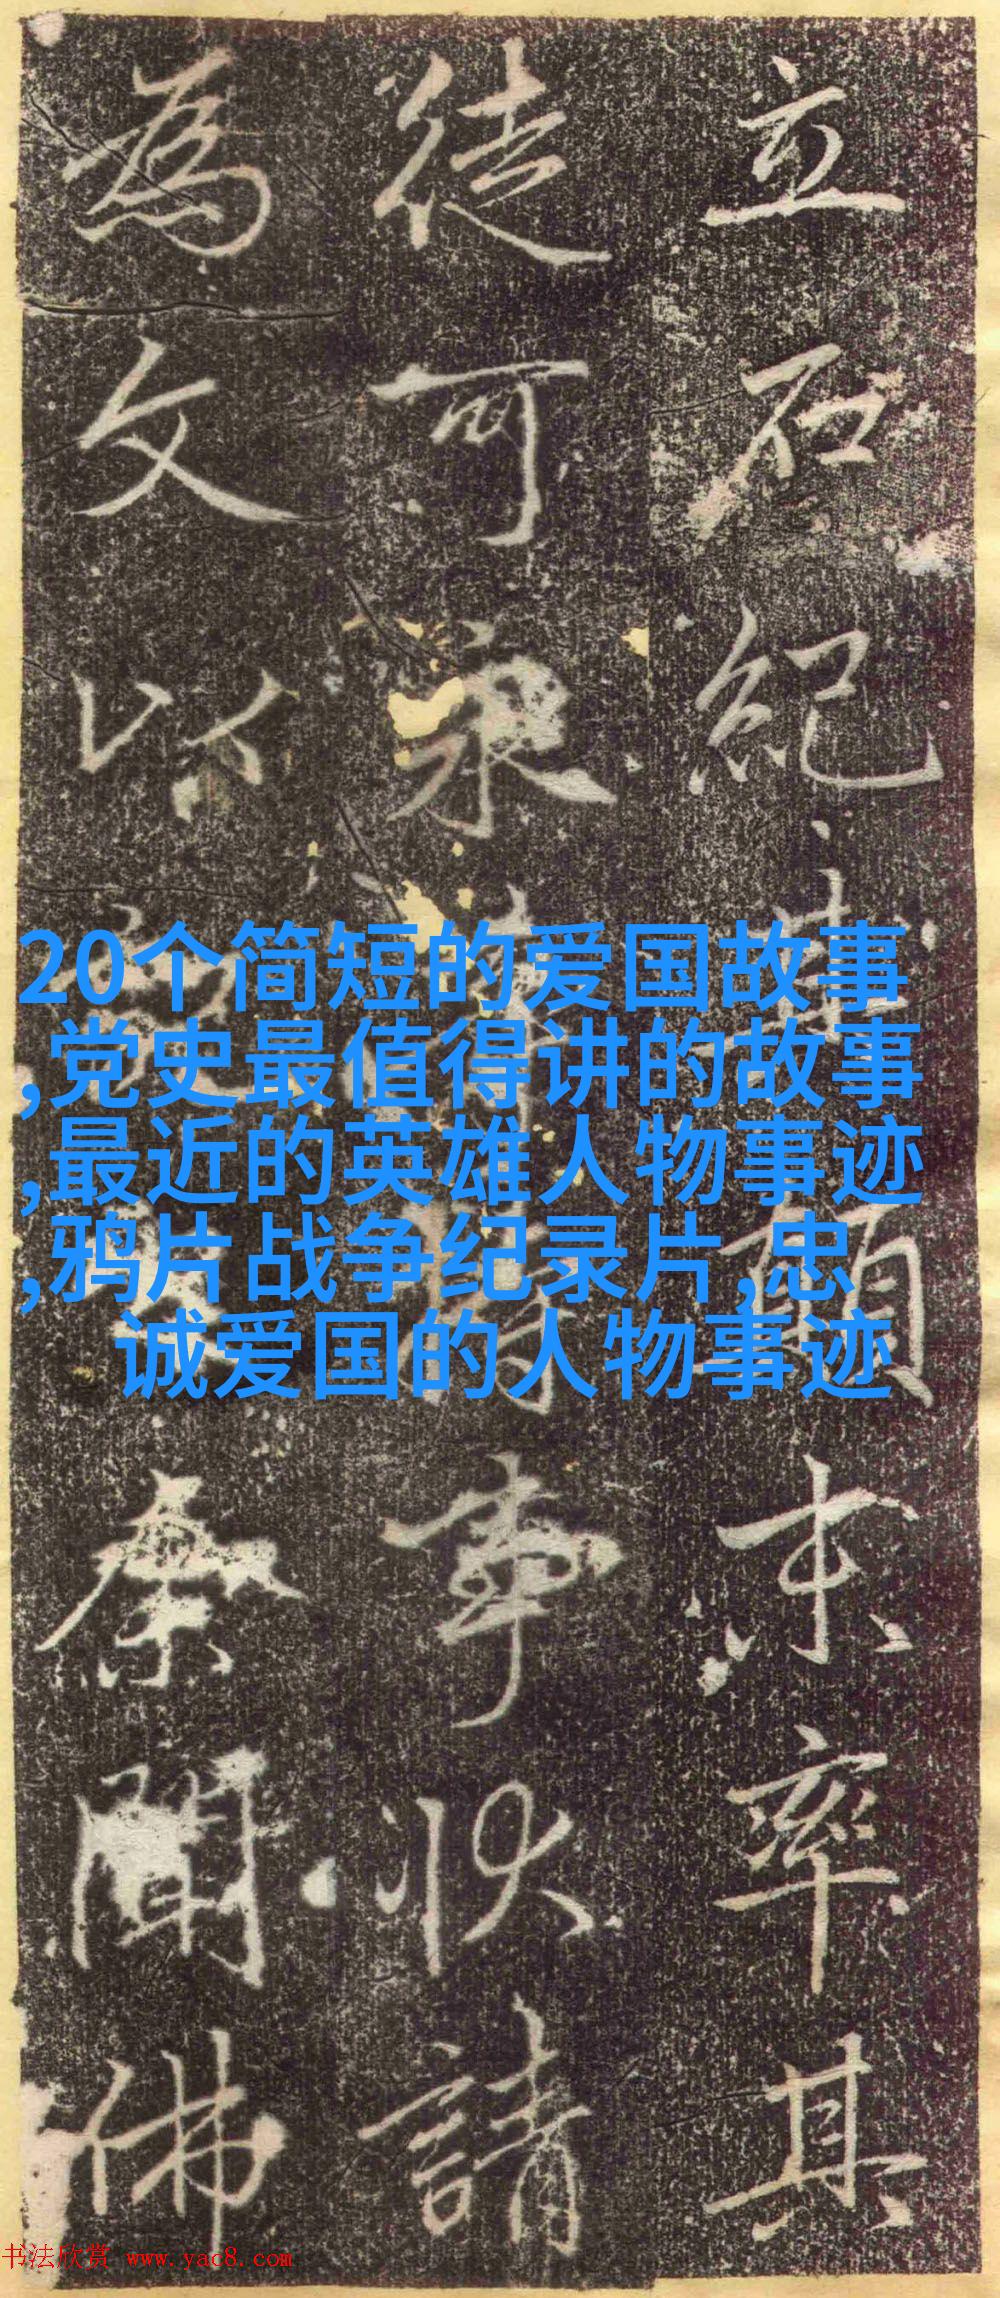 立石紀 末率其
徒可永 事状請
為文以 聞佛
20个简短的爱国故事
,党史最值得讲的故事
,最近的英雄人物事迹
,鸦片战争纪录片,忠
诚爱国的人物事迹
书法欣赏 www.yac8.com